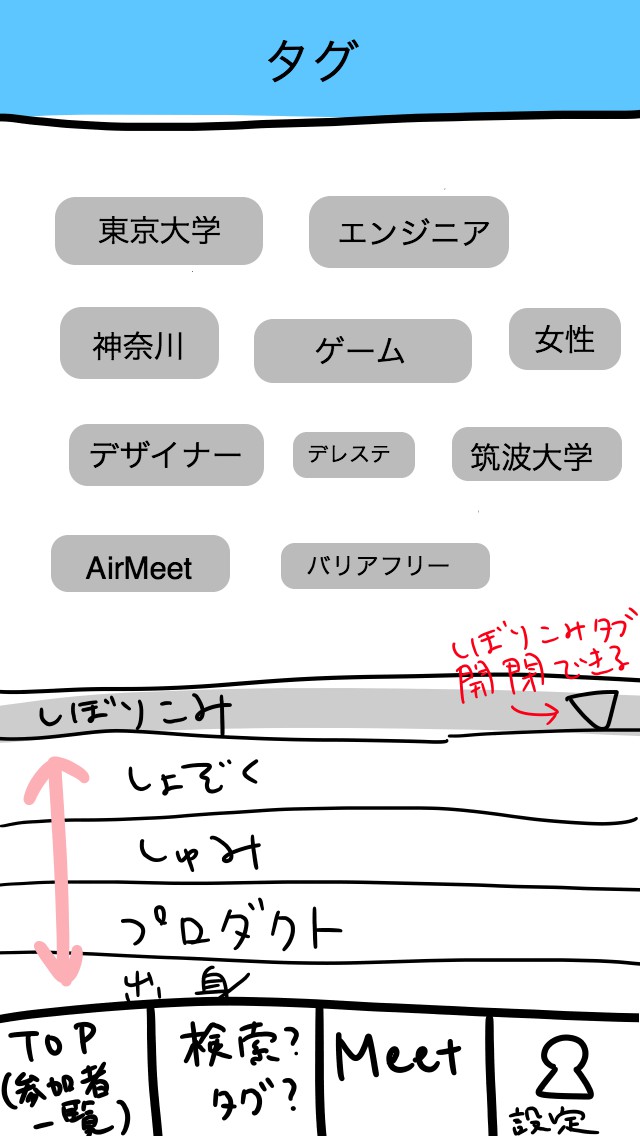 タグ
東京大学 エンジニア
神奈川 ゲーム 女性
デザイナー デレステ 筑波大学
AirMeet バリアフリー
しぼりこみタブ
開閉できる
しぼりこみ
しょぞく
しゅみ
プロダクト
出身
TOP
(参加者
一覧)
検索?
タグ?
Meet
設定